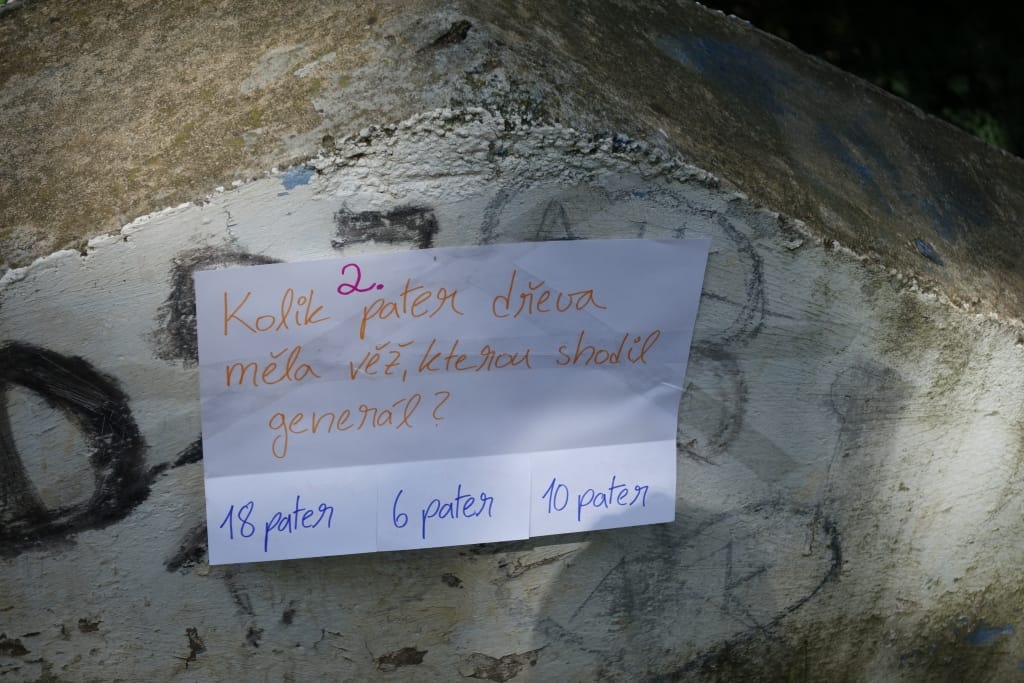 2.
Kolik pater dřeva
měla věž, kterou shodil
generál?
18 pater
6 pater
10 pater